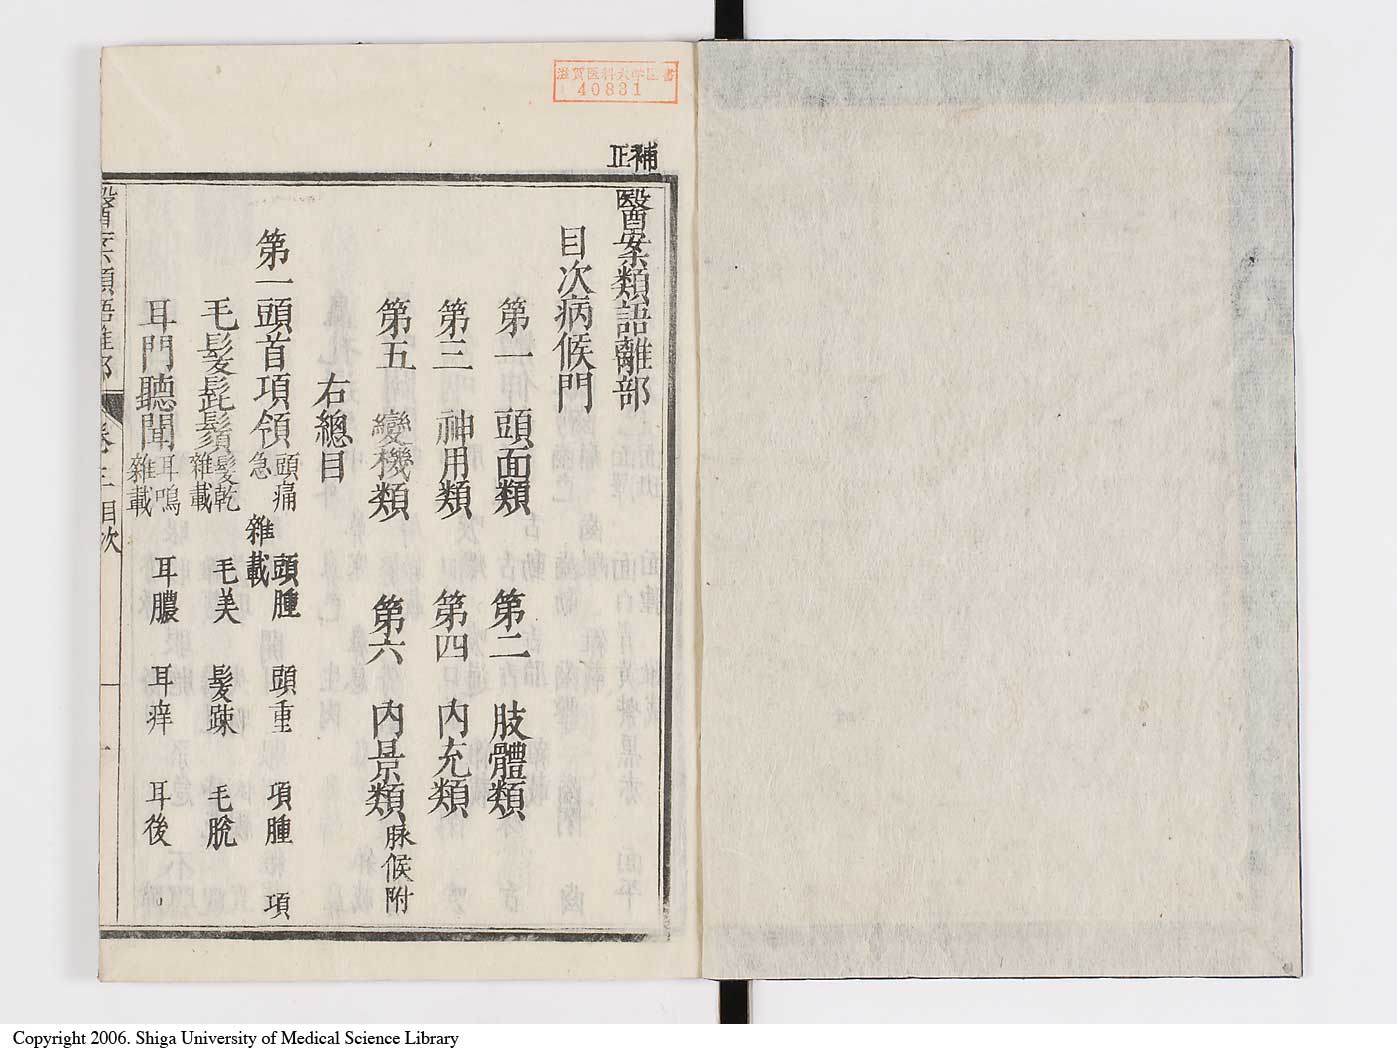 滋賀医科大学図書
40831
補正
醫案類語離部
目次病候門
第一 頭面類 第二 肢體類
第三 神用類 第四 内充類
第五 變機類 第六 内景類 脉候附
右總目
第一頭首項領 頭痛 頭腫 頭重 項腫 項
急 雜載
毛髮髭鬚 髮乾 毛美 髮踈 毛脫
雜載
耳門聽聞 耳鳴 耳膿 耳痒 耳後
雜載
Copyright 2006. Shiga University of Medical Science Library